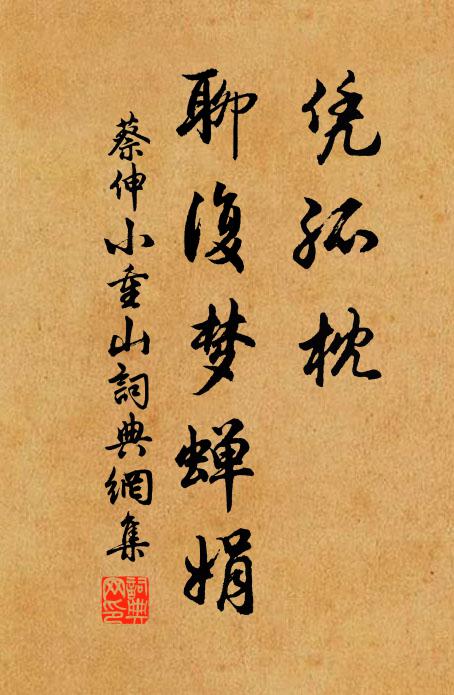 凭孤枕
聊復梦蝉娟
蔡伸小重山詞典網集
詞典网印